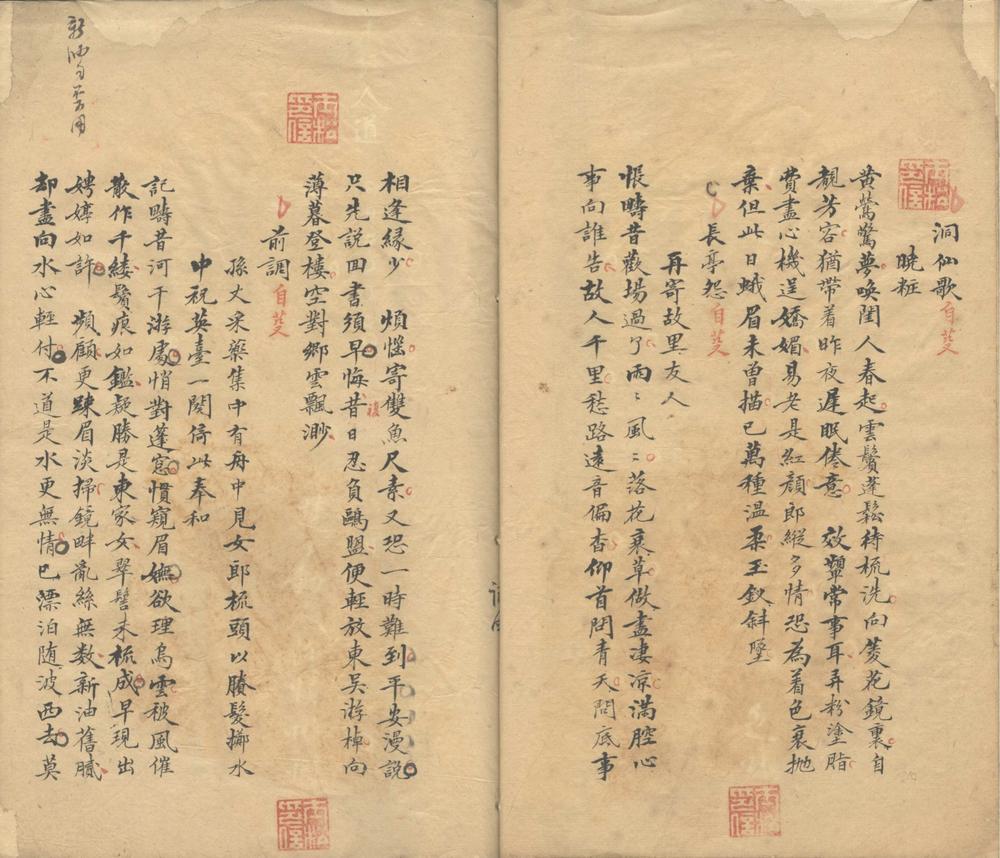 洞仙歌 自芟
曉粧
黃鶯驚夢喚閨人春起雲鬢蓬鬆待梳洗向菱花鏡裏自
靚芳容猶帶着昨夜遲眠倦意 效顰常事耳弄粉塗脂
費盡心機逞嬌媚易老是紅顏郎縱多情恐為着色衰拋
棄但此日蛾眉未曾描已萬種温柔玉釵斜墜
長亭怨 自芟
再寄故里友人
悵疇昔歡場過了雨〻風〻落花衰草做盡凄凉滿腔心
事向誰告故人千里愁路遠音偏杳仰首問青天問底事
相逢緣少 煩惱寄雙魚尺素又恐一時難到平安漫說
只先說回書須早悔昔日忍負鷗盟便輕放東吳游棹向
復
薄暮登樓空對鄉雲飄渺
前調 自芟
孫丈采藥集中有舟中見女郎梳頭以賸髮擲水
中祝英臺一闋倚此奉和
記疇昔河干游處悄對蓬窓慣窺眉嫵欲理烏雲被風催
散作千縷鬢痕如鑑疑勝是東家女翠髻未梳成早現出
娉婷如許 頻顧更疎眉淡掃鏡畔亂絲無數新油舊膩
却盡向水心輕付不道是水更無情已漂泊随波西去莫